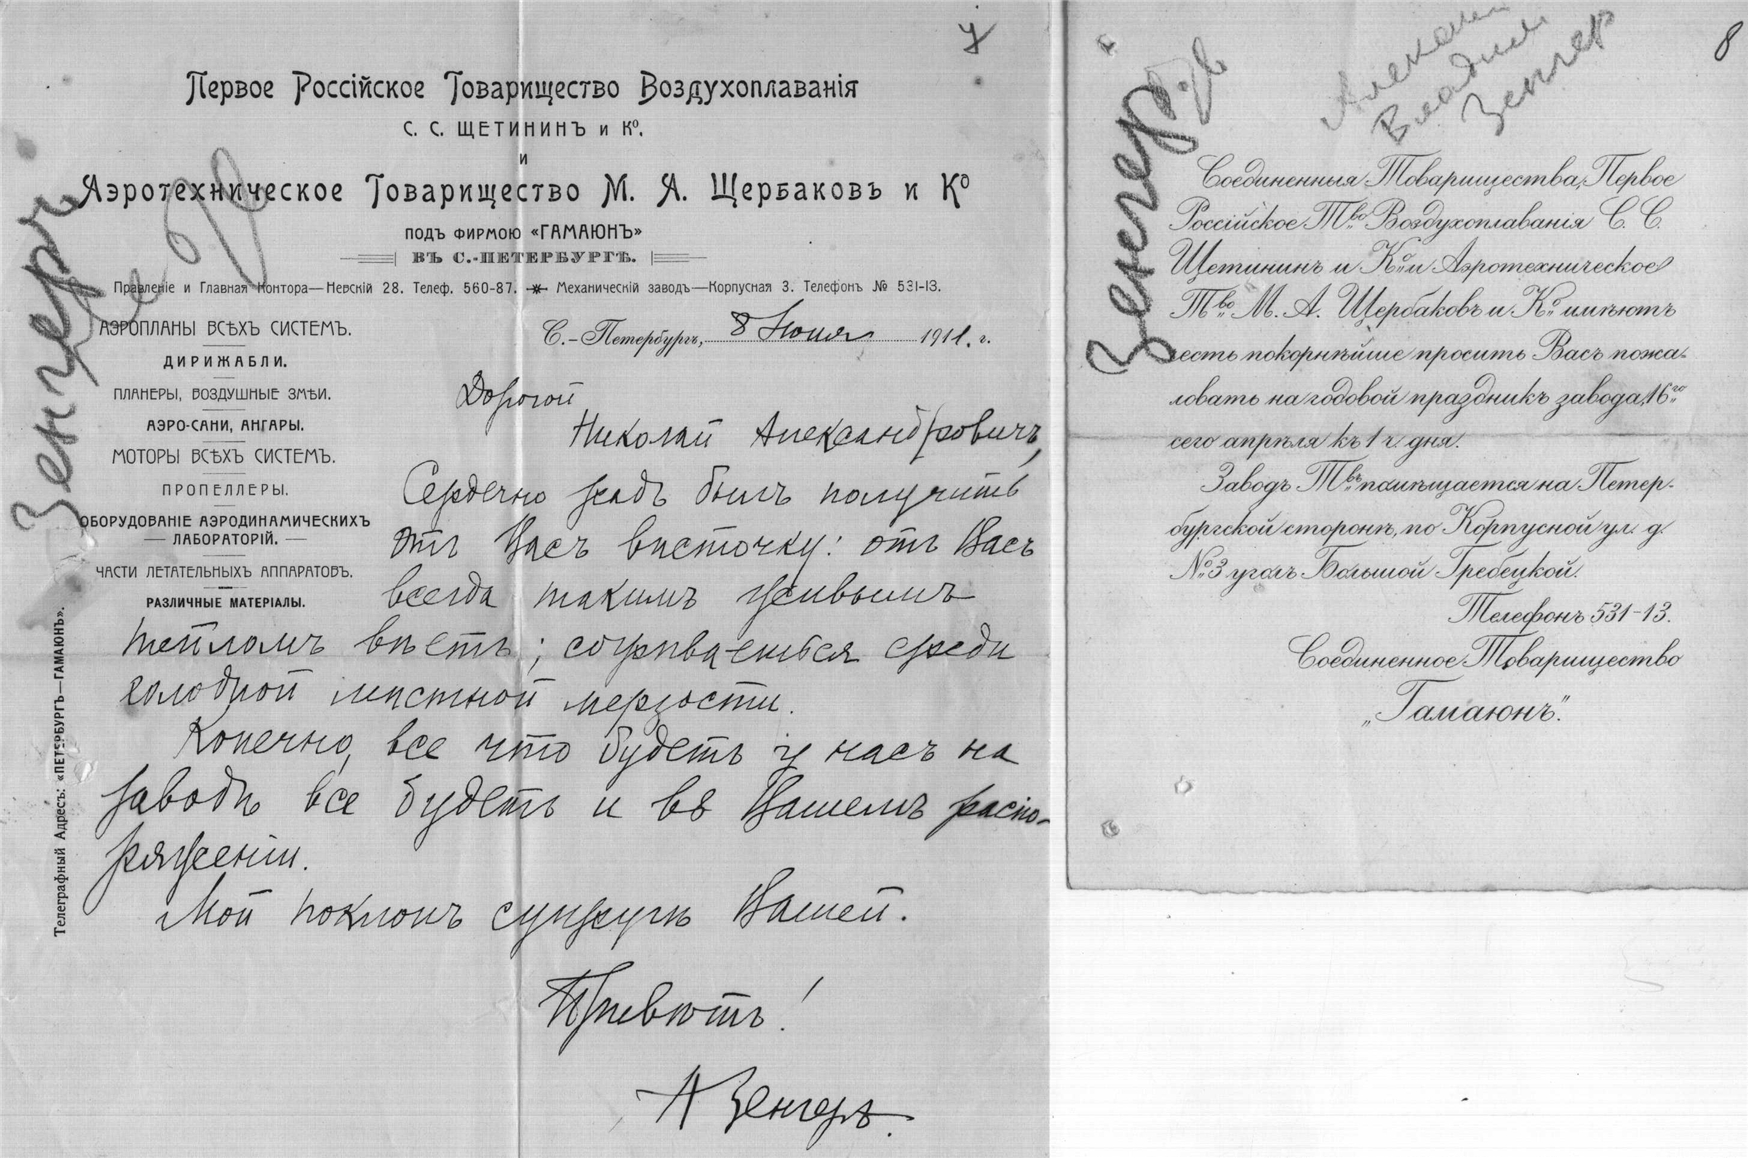 7
Первое Россійское Товарищество Воздухоплаванія
С. С. ЩЕТИНИНЪ и Кº.
и
Аэротехническое Товарищество М. А. Щербаковъ и Кº
ПОДЪ ФИРМОЮ «ГАМАЮНЪ»
ВЪ С.-ПЕТЕРБУРГѢ.
Правленіе и Главная Контора—Невскій 28. Телеф. 560-87. Механическій заводъ—Корпусная 3. Телефонъ № 531-13.
Зенгеръ
АЭРОПЛАНЫ ВСѢХЪ СИСТЕМЪ.
ДИРИЖАБЛИ.
ПЛАНЕРЫ, ВОЗДУШНЫЕ ЗМѢИ.
АЭРО-САНИ, АНГАРЫ.
МОТОРЫ ВСѢХЪ СИСТЕМЪ.
ПРОПЕЛЛЕРЫ.
ОБОРУДОВАНІЕ АЭРОДИНАМИЧЕСКИХЪ
ЛАБОРАТОРІЙ.
ЧАСТИ ЛЕТАТЕЛЬНЫХЪ АППАРАТОВЪ.
РАЗЛИЧНЫЕ МАТЕРІАЛЫ.
Телеграфный Адресъ: «ПЕТЕРБУРГЪ—ГАМАЮНЪ».
С.-Петербургъ, 8 Іюня 1911. г.
Дорогой
Николай Александровичъ,
Сердечно радъ былъ получить
отъ Васъ весточку: отъ Васъ
всегда такимъ живымъ
тепломъ вѣетъ; согрѣваешься среди
холодной мѣстной мерзости.
Конечно, все что будетъ у насъ на
заводѣ все будетъ и въ Вашемъ распо-
ряженіи.
Мой поклонъ супругѣ Вашей.
Привѣтъ!
А Зенгеръ.
8
Зенгер
Владим
Зенгер
Соединенныя Товарищества, Первое
Россійское Тво. Воздухоплаванія С. С.
Щетининъ и Кº. и Аэротехническое
Тво. М. А. Щербаковъ и Кº. имѣютъ
честь покорнѣйше просить Васъ пожа-
ловать на годовой праздникъ завода, 16го
сего апрѣля къ 1 ч. дня.
Заводъ Твъ. помѣщается на Петер-
бургской сторонѣ, по Корпусной ул. д.
№ 3 уголъ Большой Гребецкой.
Телефонъ 531-13.
Соединенное Товарищество
„Гамаюнъ".